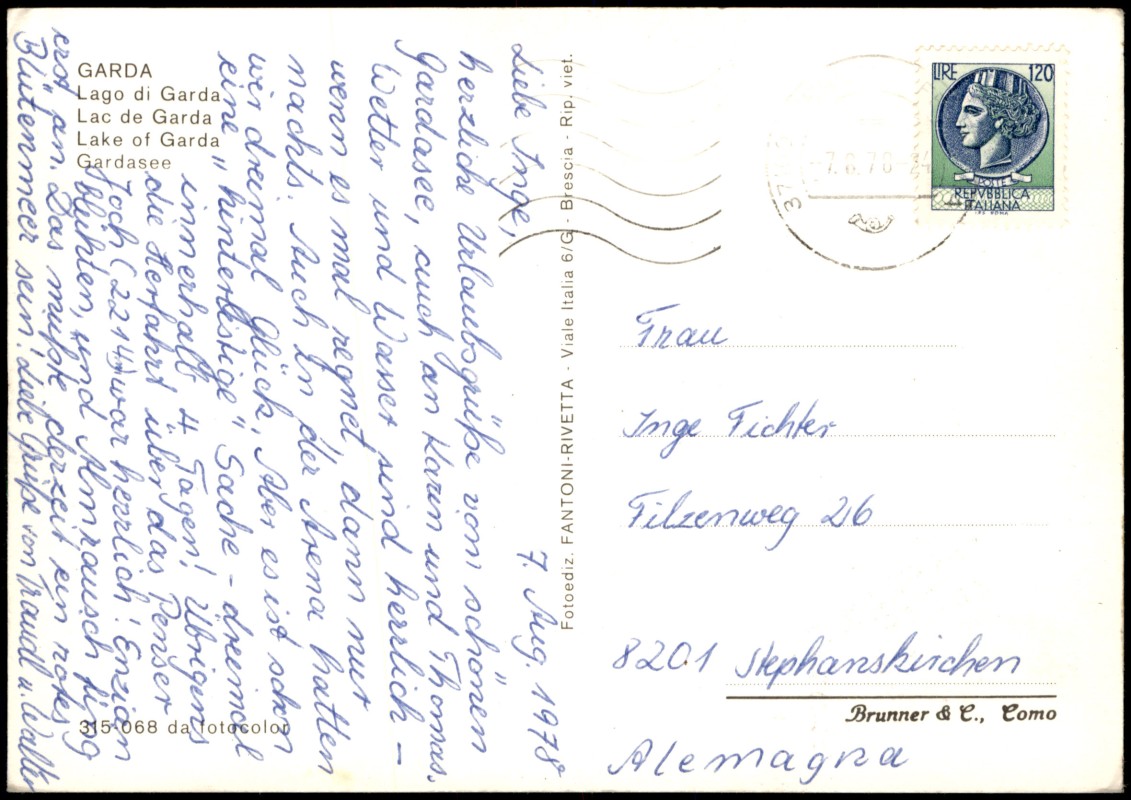 GARDA
Lago di Garda
Lac de Garda
Lake of Garda
Gardasee
7. Aug. 1978
Liebe Inge,
herzliche Urlaubsgrüße vom schönen
Gardasee, auch an Karin und Thomas.
Wetter und Wasser sind herrlich –
wenn es mal regnet, dann nur
nachts. Auch in der Arena hatten
wir dreimal Glück. Aber es ist schon
eine "hinterlistige" Sache – dreimal
innerhalb 4 Tagen! Übrigens
die Herfahrt über das Penser
Joch (2214) war herrlich! Enzian
blühten, und Almrausch fing
erst an. Das mußte derzeit ein rotes
Blütenmeer sein! Liebe Grüße von Traudl u. Walter
315-068 da fotocolor
Fotoediz. FANTONI-RIVETTA - Viale Italia 6/G - Brescia - Rip. viet.
LIRE 120
REPVBBLICA
ITALIANA
7.8.78-24
Frau
Inge Fichter
Filzenweg 26
8201 Stephanskirchen
Brunner & C., Como
Alemagna